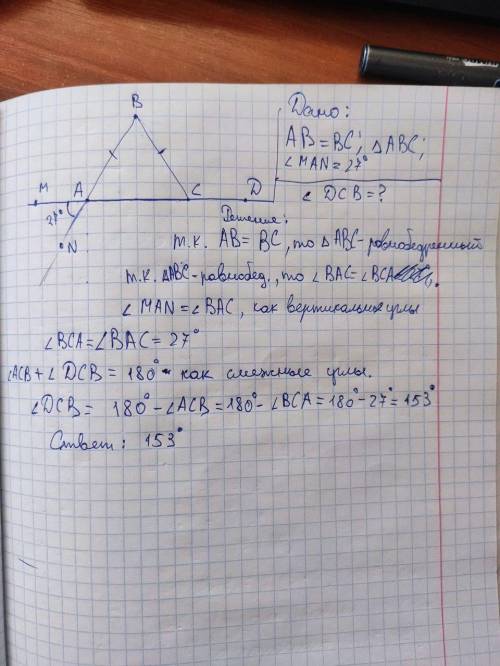 B
Дано:
AB = BC; △ABC;
∠MAN = 27°
∠ DCB = ?
M A C D
27°
N
Решение:
т.к. AB = BC, то △ABC - равнобедренный
т.к. △ABC - равнобед., то ∠BAC = ∠BCA.
∠MAN = ∠BAC, как вертикальные углы
∠BCA = ∠BAC = 27°
∠ACB + ∠DCB = 180° - как смежные углы.
∠DCB = 180° - ∠ACB = 180° - ∠BCA = 180° - 27° = 153°
Ответ: 153°